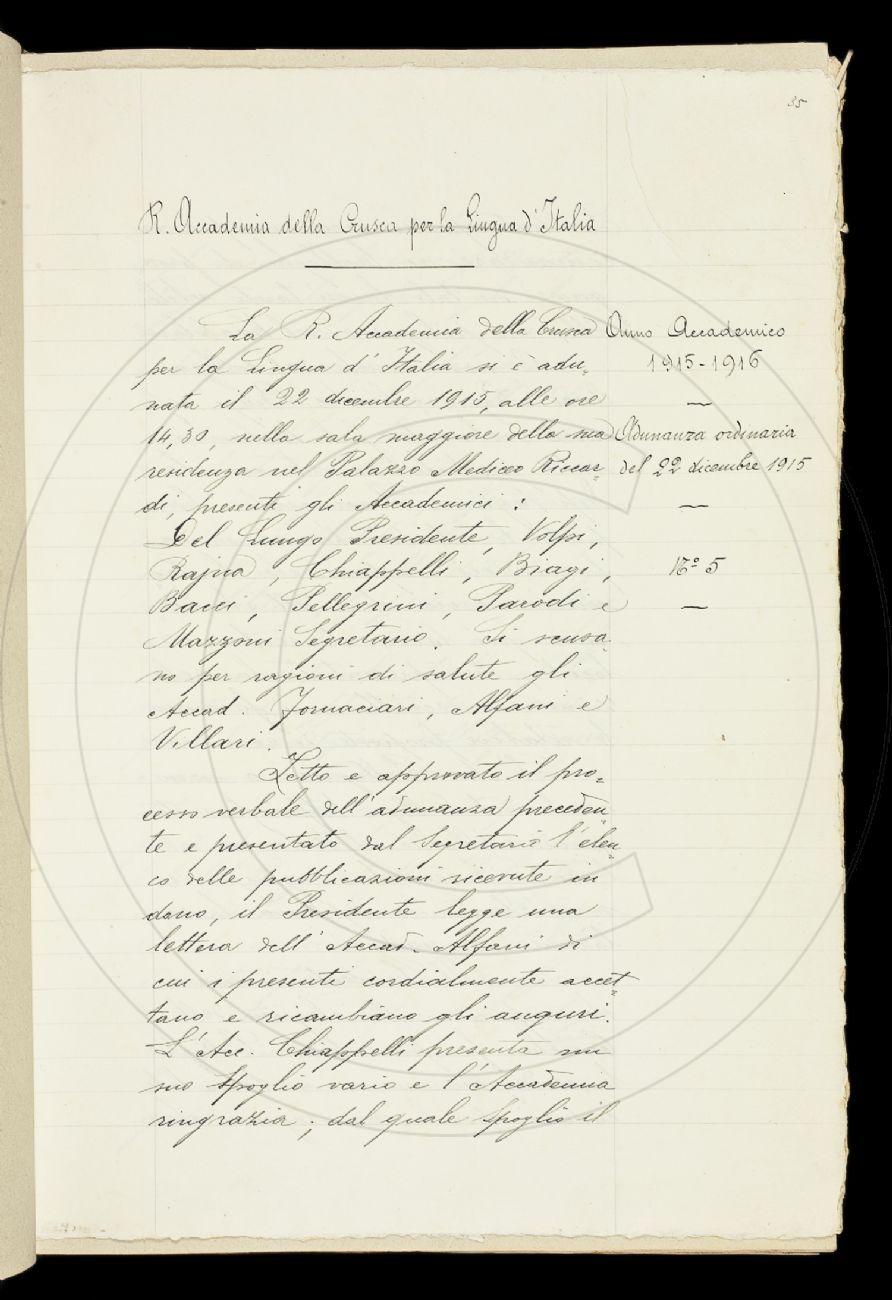 35
R. Accademia della Crusca per la Lingua d'Italia
La R. Accademia della Crusca
per la Lingua d'Italia si è adu=
nata il 22 dicembre 1915, alle ore
14,30, nella sala maggiore della sua
residenza nel Palazzo Mediceo Riccar=
di, presenti gli Accademici :
Del Lungo Presidente, Volpi,
Rajna, Chiappelli, Biagi,
Bacci, Pellegrini, Parodi e
Mazzoni Segretario. Si scusa=
no per ragioni di salute gli
Accad. Fornaciari, Alfani e
Villari.
Letto e approvato il pro=
cesso verbale dell'adunanza preceden=
te e presentato dal Segretario l'elen=
co delle pubblicazioni ricevute in
dono, il Presidente legge una
lettera dell'Accad. Alfani di
cui i presenti cordialmente accet=
tano e ricambiano gli auguri.
L'Acc. Chiappelli presenta un
suo spoglio vario e l'Accademia
ringrazia ; dal quale spoglio il
Anno Accademico
1915-1916
Adunanza ordinaria
del 22 dicembre 1915
N.º 5